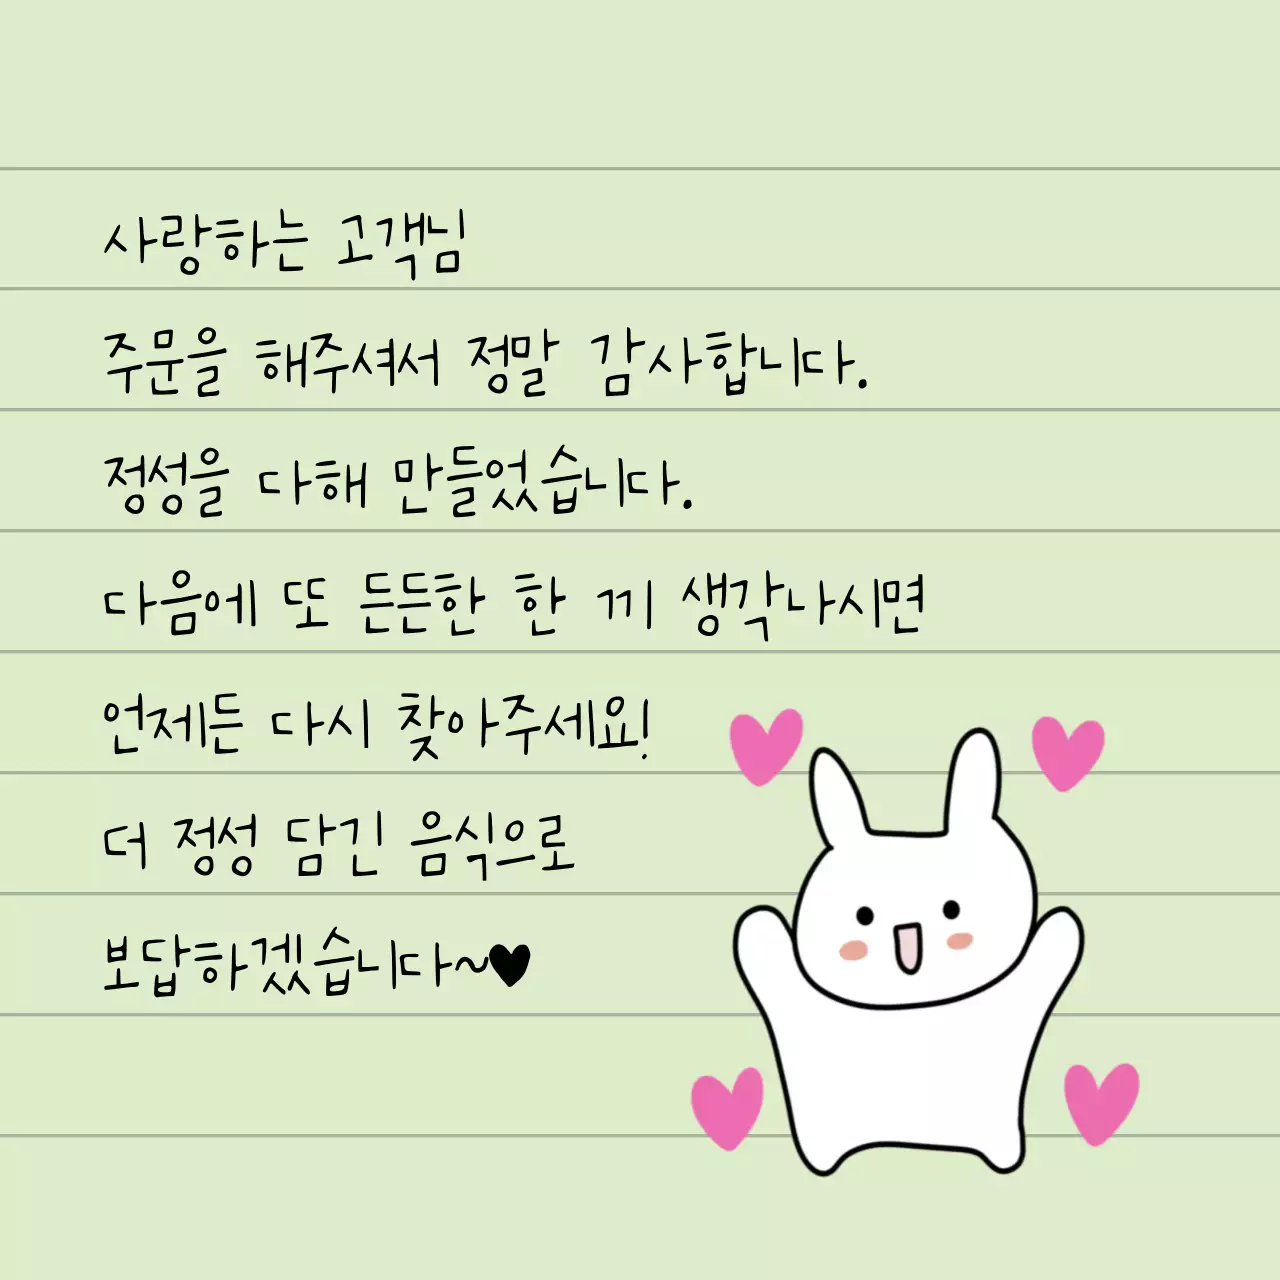 사랑하는 고객님
주문을 해주셔서 정말 감사합니다.
정성을 다해 만들었습니다.
다음에 또 든든한 한 끼 생각나시면
언제든 다시 찾아주세요!
더 정성 담긴 음식으로
보답하겠습니다~♥